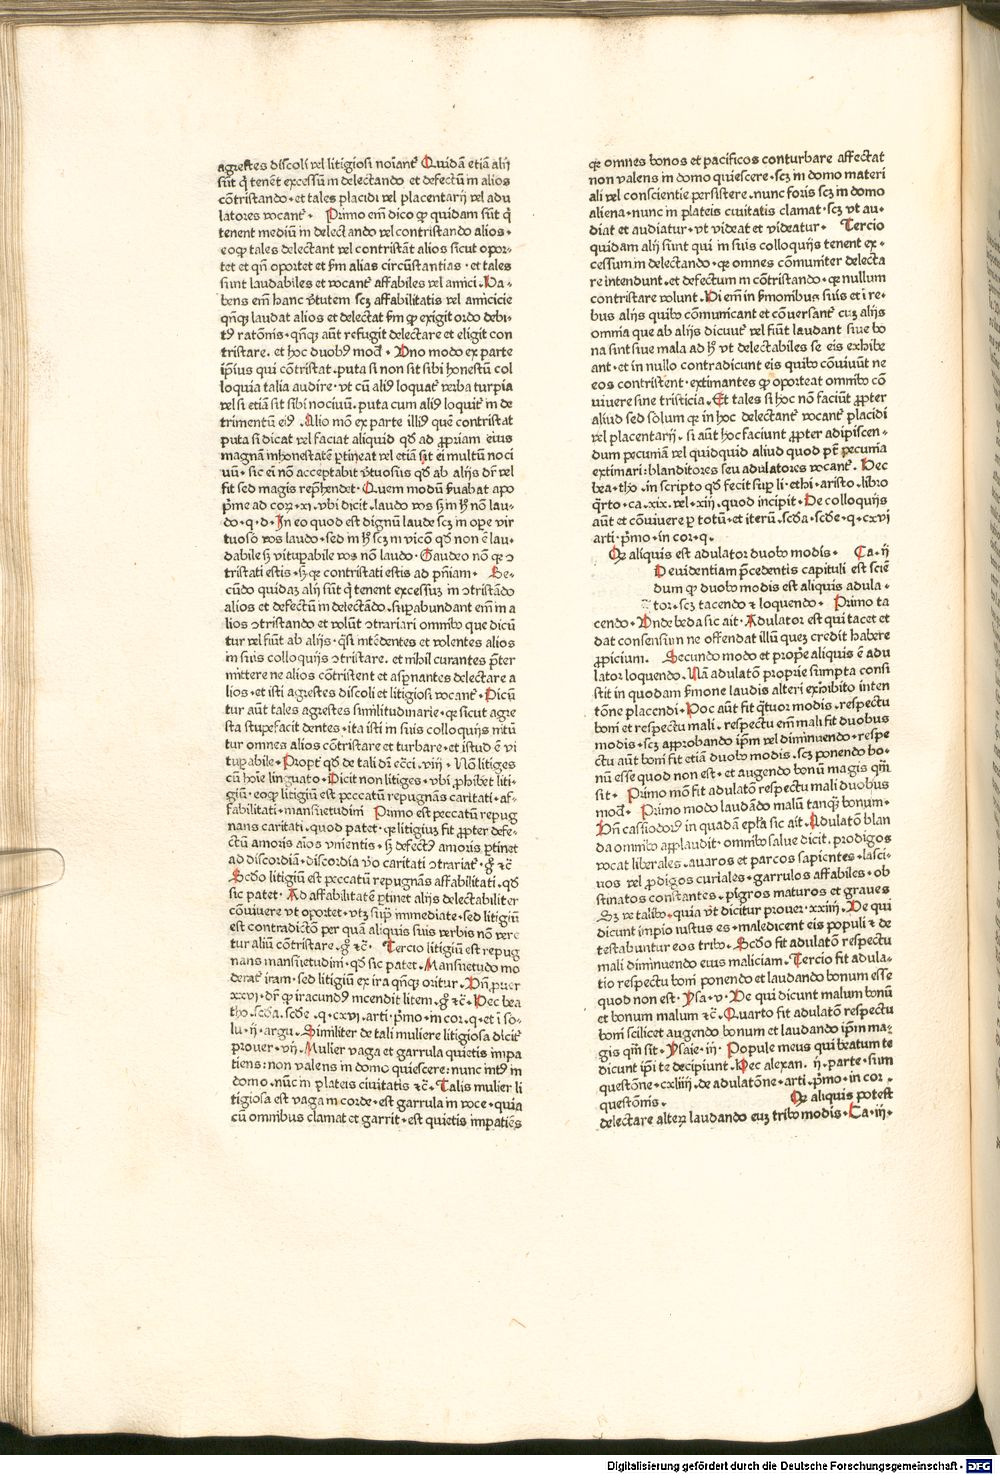 agrestes discoli vel litigiosi noīant᷑ Quidā etiā alij
sūt q̇ tenent excessū in delectando et defectū in alios
cōtristando · et tales placidi vel placentarij vel adu
latores vocant᷑ · Primo em̄ dico ꝙ quidam sūt q̇
tenent mediū in delectando vel contristando alios ·
eoꝙ tales delectant vel contristāt alios sicut opor⸗
tet et qn̄ oportet et ẜm alias circūstantias · et tales
sunt laudabiles et vocant᷑ affabiles vel amici · Ha⸗
bens em̄ hanc v̄tutem scꝫ affabilitatis vel amicicie
qn̄qꝫ laudat alios et delectat ẜm ꝙ exigit ordo debi⸗
tꝰ ratōnis · qn̄qꝫ aūt refugit delectare et eligit con
tristare. et hoc duobꝰ mod̄ · Vno modo ex parte
ip̄ius qui cōtristat · puta si non sit sibi honestū col
loquia talia audire · vt cū aliꝰ loquat᷑ verba turpia
vel si etiā sit sibi nociuū . puta cum aliꝰ loquit᷑ in de
trimentū eiꝰ . Alio mō ex parte illiꝰ quē contristat
puta si dicat vel faciat aliquid qd̄ ad ꝓpriam eius
magnā inhonestatē ꝑtineat vel etiā sit ei multū noci
uū · sic ei nō acceptabit v̄tuosiꝰ qd̄ ab alijs dr̄ vel
fit sed magis rep̄hendet · Quem modū ẜuabat apo
p̄me ad corꝝ · xi · vbi dicit . laudo vos ꝫ in ħ nō lau⸗
do · q · d · In eo quod est dignū laude scꝫ in oꝑe vir
tuoso vos laudo · sed in ħ scꝫ in vicio qd̄ non ē lau⸗
dabile ꝫ vituꝑabile vos nō laudo · Gaudeo nō ꝙ ꝯ
tristati estis · ꝫ ꝙ contristati estis ad pn̄iam · Se⸗
cūdo quidaꝫ alij sūt q̇ tenent excessuꝫ in ꝯtristādo
alios et defectū in delectādo . suꝑabundant em̄ in a
lios ꝯtristando et volūt ꝯtrariari omnibꝰ que dicū
tur vel fiūt ab alijs · q̄si intēdentes et volentes alios
in suis colloquijs ꝯtristare . et nihil curantes p̄ter
mittere ne alios cōtristent et asp̄nantes delectare a
lios · et isti agrestes discoli et litigiosi vocant᷑ · Dicū
tur aūt tales agrestes similitudinarie · ꝙ sicut agre
sta stupefacit dentes · ita isti in suis colloquijs nitū
tur omnes alios cōtristare et turbare · et istud ē vi
tuꝑabile · Propt᷑ qd̄ de tali dn̄ ecc̄i . viij · Nō litiges
cū hoīe linguato · Dicit non litiges · vbi ꝓhibet liti⸗
giū · eoꝙ litigiū est peccatū repugnās caritati · af⸗
fabilitati · mansuetudini Primo est peccatū repug
nans caritati . quod patet · ꝙ litigiuꝫ fit ꝓpter defe⸗
ctū amoris aīos vnientis · ꝫ defectꝰ amoris ꝑtinet
ad discordiā · discordia v̄o caritati ꝯtrariat᷑ · ḡ ⁊c̄
Scd̄o litigiū est peccatū repugnās affabilitati . qd̄
sic patet · Ad affabilitatē ꝑtinet alijs delectabiliter
cōuiuere vt oportet · vtꝫ sup̄ immediate · sed litigiū
est contradictō per quā aliquis suis verbis nō vere
tur aliū cōtristare . ḡ ⁊c̄ · Tercio litigiū est repug
nans mansuetudini · qd̄ sic patet . Mansuetudo mo
derat᷑ iram · sed litigiū ex ira qn̄qꝫ oritur . Vn̄ ꝓuer
xxvi · dr̄ ꝙ iracundꝰ incendit litem . ḡ ⁊c̄ · Hec bea
tho . scd̄a . scd̄e . q · cxvi . arti · p̄mo · in cor . q · et ī so⸗
lu · ij · argu . Similiter de tali muliere litigiosa dicit᷑
prouer · vij . Mulier vaga et garrula quietis impa
tiens : non valens in domo quiescere : nunc intꝰ in
domo . nūc in plateis ciuitatis ⁊c̄ · Talis mulier li
tigiosa est vaga in corde · est garrula in voce · quia
cū omnibus clamat et garrit · est quietis impatiēs
ꝙ omnes bonos et pacificos conturbare affectat
non valens in domo quiescere · scꝫ in domo materi
ali vel conscientie persistere . nunc foris scꝫ in domo
aliena · nunc in plateis ciuitatis clamat · scꝫ vt au⸗
diat et audiatur · vt videat et videatur · Tercio
quidam alij sunt qui in suis colloquijs tenent ex⸗
cessum in delectando · ꝙ omnes cōmuniter delecta
re intendunt . et defectum in cōtristando · ꝙ nullum
contristare volunt . Hi em̄ in ẜmonibus suis et ī re⸗
bus alijs quibꝰ cōmunicant et cōuersant᷑ cuꝫ alijs
omnia que ab alijs dicunt᷑ vel fiunt laudant siue bo
na sint siue mala ad ħ vt delectabiles se eis exhibe
ant · et in nullo contradicunt eis quibꝰ cōuiuūt ne
eos contristent · extimantes ꝙ oporteat omnibꝰ cō
viuere sine tristicia . Et tales si hoc nō faciūt ꝓpter
aliud sed solum ꝙ in hoc delectant᷑ vocant᷑ placidi
vel placentarij . si aūt hoc faciunt ꝓpter adipiscen⸗
dum pecuniā vel quidquid aliud quod pt̄ pecunia
extimari : blanditores seu adulatores vocant᷑ . Hec
bea · tho . in scripto qd̄ fecit suꝑ li · ethi · aristo . libro
q̄rto · ca . xix . vel · xiij . quod incipit · De colloquijs
aūt et cōuiuere ꝑ totū · et iterū . scd̄a . scd̄e · q · cxvi
arti · p̄mo · in cor · q ·
Ꝙ aliquis est adulator duobꝰ modis · Ca · ij
De euidentiam p̄cedentis capituli est sciē
dum ꝙ duobꝰ modis est aliquis adula⸗
tor · scꝫ tacendo ⁊ loquendo · Primo ta
cendo · Vnde beda sic ait · Adulator est qui tacet et
dat consensum ne offendat illū quem credit habere
ꝓpicium . Secundo modo et proprie aliquis ē adu
lator loquendo . Nā adulatō proprie sumpta consi
stit in quodam ẜmone laudis alteri exhibito inten
tōne placendi · Hoc aūt fit q̄tuor modis . respectu
boni et respectu mali . respectu em̄ mali fit duobus
modis · scꝫ approbando ip̄m vel diminuendo · respe
ctu aūt boni fit etiā duobꝰ modis . scꝫ ponendo bo⸗
nū esse quod non est · et augendo bonū magis qm̄
sit · Primo mō fit adulatō respectu mali duobus
mod̄ · Primo modo laudādo malū tanqꝫ bonum ·
Vn̄ cassiodorꝰ in quadā epl̄a sic ait . Adulatō blan
da omnibꝰ applaudit · omnibꝰ salue dicit . prodigos
vocat liberales . auaros et parcos sapientes · lasci⸗
uos vel ꝓdigos curiales · garrulos affabiles · ob
stinatos constantes . pigros maturos et graues
Sꝫ ve talibꝰ . quia vt dicitur prouer · xxiiij . De qui
dicunt impio iustus es · maledicent eis populi ⁊ de
testabuntur eos tribꝰ . Scd̄o fit adulatō respectu
mali diminuendo eius maliciam . Tercio fit adula⸗
tio respectu boni ponendo et laudando bonum esse
quod non est · Ysa · v · Ve qui dicunt malum bonū
et bonum malum ⁊c̄ . Quarto fit adulatō respectu
boni scilicet augendo bonum et laudando ip̄m ma⸗
gis qm̄ sit · Ysaie · iij · Popule meus qui beatum te
dicunt ip̄i te decipiunt . Hec alexan . ij . parte . sum
questōne · cxliiij . de adulatōne · arti . p̄mo · in cor .
questōnis . Ꝙ aliquis potest
delectare alterꝝ laudando euꝫ tribꝰ modis · Ca · iij ·
Digitalisierung gefördert durch die Deutsche Forschungsgemeinschaft - DFG